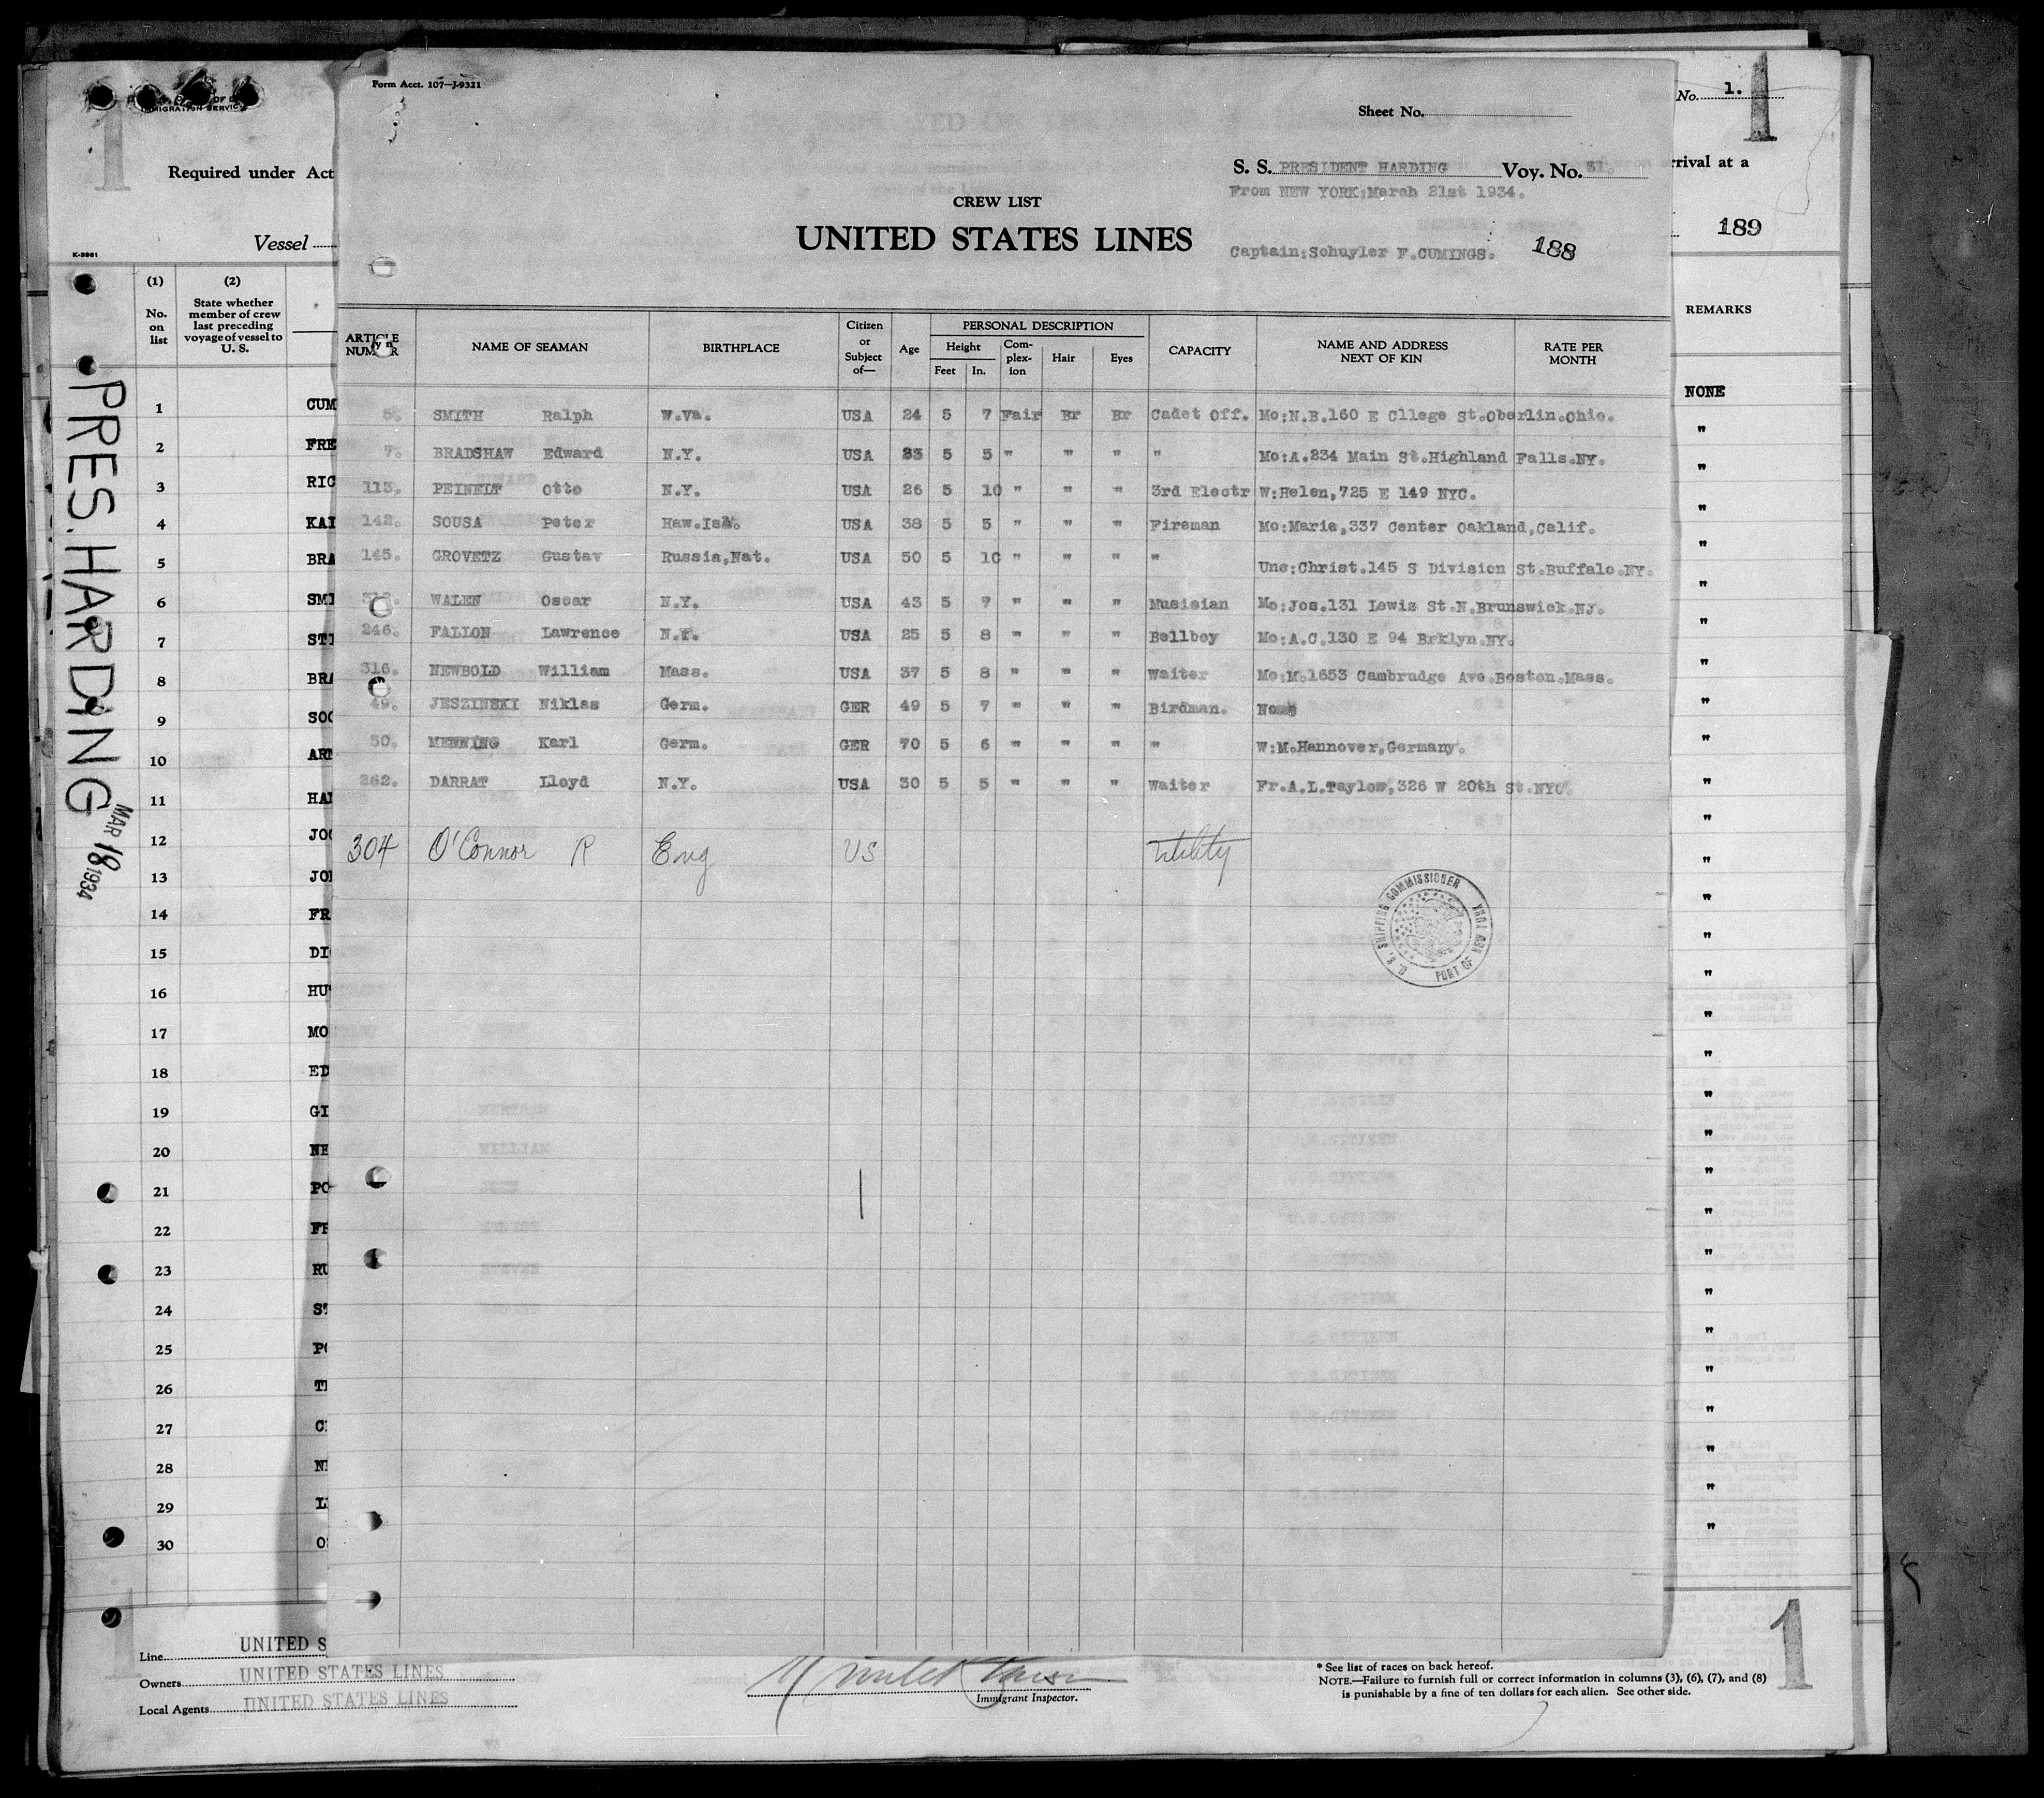 Form Acct. 107—J-9321
Sheet No.
No. 1.
1
1
OF
IMMIGRATION SERVICE
Required under Act
rrival at a
S. S. PRESIDENT HARDING Voy. No. 31.
From NEW YORK:March 21st 1934.
CREW LIST
UNITED STATES LINES
Captain:Schuyler F.CUMINGS. 188
189
Vessel
K-3961
(1) (2)
No. on list
State whether member of crew last preceding voyage of vessel to U. S.
REMARKS
ARTICLE NUMBER NAME OF SEAMAN BIRTHPLACE Citizen or Subject of— Age PERSONAL DESCRIPTION Height Feet In. Complexion Hair Eyes CAPACITY NAME AND ADDRESS NEXT OF KIN RATE PER MONTH
5. SMITH Ralph W.Va. USA 24 5 7 Fair Br Br Cadet Off. Mo:N.B.160 E Cllege St.Oberlin.Ohio.
7. BRADSHAW Edward N.Y. USA 23 5 5 " " " " Mo:A.234 Main St.Highland Falls.NY.
113. PEINELT Otto N.Y. USA 26 5 10 " " " 3rd Electr W:Helen,725 E 149 NYC.
142. SOUSA Peter Haw.Isl. USA 38 5 5 " " " Fireman Mo:Marie,337 Center Oakland,Calif.
145. GROVETZ Gustav Russia,Nat. USA 50 5 10 " " " " Unc:Christ.145 S Division St.Buffalo.NY.
WALEN Oscar N.Y. USA 43 5 7 " " " Musisian Mo:Jos.131 Lewis St.N.Brunswick.NJ.
246. FALLON Lawrence N.Y. USA 25 5 8 " " " Bellboy Mo:A.C.130 E 94 Brklyn.NY.
316. NEWBOLD William Mass. USA 37 5 8 " " " Waiter Mo:M.1653 Cambrudge Ave.Boston.Mass.
49. JESZINSKI Niklas Germ. GER 49 5 7 " " " Birdman. None
50. MENNING Karl Germ. GER 70 5 6 " " " " W:M.Hannover,Germany.
262. DARRAT Lloyd N.Y. USA 30 5 5 " " " Waiter Fr.A.L.Taylow,326 W 20th St.NYC.
304 O'Connor R Eng US Utility
U. S. SHIPPING COMMISSIONER PORT OF NEW YORK
PRES. HARDING
MAR 18 1934
1 CUM NONE
2 FRE "
3 RIC "
4 KAI "
5 BRA "
6 SMI "
7 STI "
8 BRA "
9 SOC "
10 ARN "
11 HAN "
12 JOC "
13 JOH "
14 FR "
15 DI "
16 HU "
17 MO "
18 ED "
19 GI "
20 NE "
21 PO "
22 FR "
23 RU "
24 ST "
25 PO "
26 T "
27 C "
28 N "
29 L "
30 O "
Line UNITED S
Owners UNITED STATES LINES
Local Agents UNITED STATES LINES
Immigrant Inspector.
* See list of races on back hereof.
NOTE.—Failure to furnish full or correct information in columns (3), (6), (7), and (8)
is punishable by a fine of ten dollars for each alien. See other side.
1